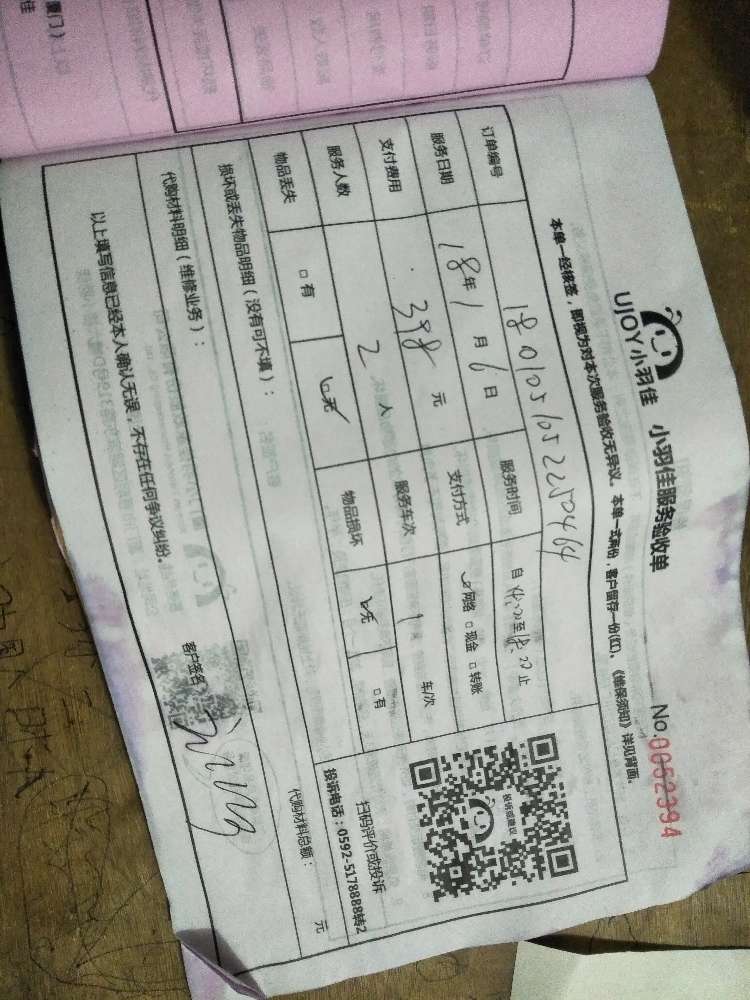 UJOY小羽佳 小羽佳服务验收单
No.0052394
本单一经核签，即视为对本次服务验收无异议。本单一式两份，客户留存一份(红)。《维保须知》详见背面。
订单编号 1801051052250464
服务日期 18年1月6日 服务时间 自 至 止
支付费用 398元 支付方式 网络 □现金 □转账
服务人数 2人 服务车次 1 车/次
物品丢失 □有 无 物品损坏 无 □有
投诉或建议
扫码评价或投诉
投诉电话：0592-5178888转2
损坏或丢失物品明细（没有可不填）：
代购材料明细（维修业务）： 代购材料总额： 元
以上填写信息已经本人确认无误，不存在任何争议纠纷。 客户签名